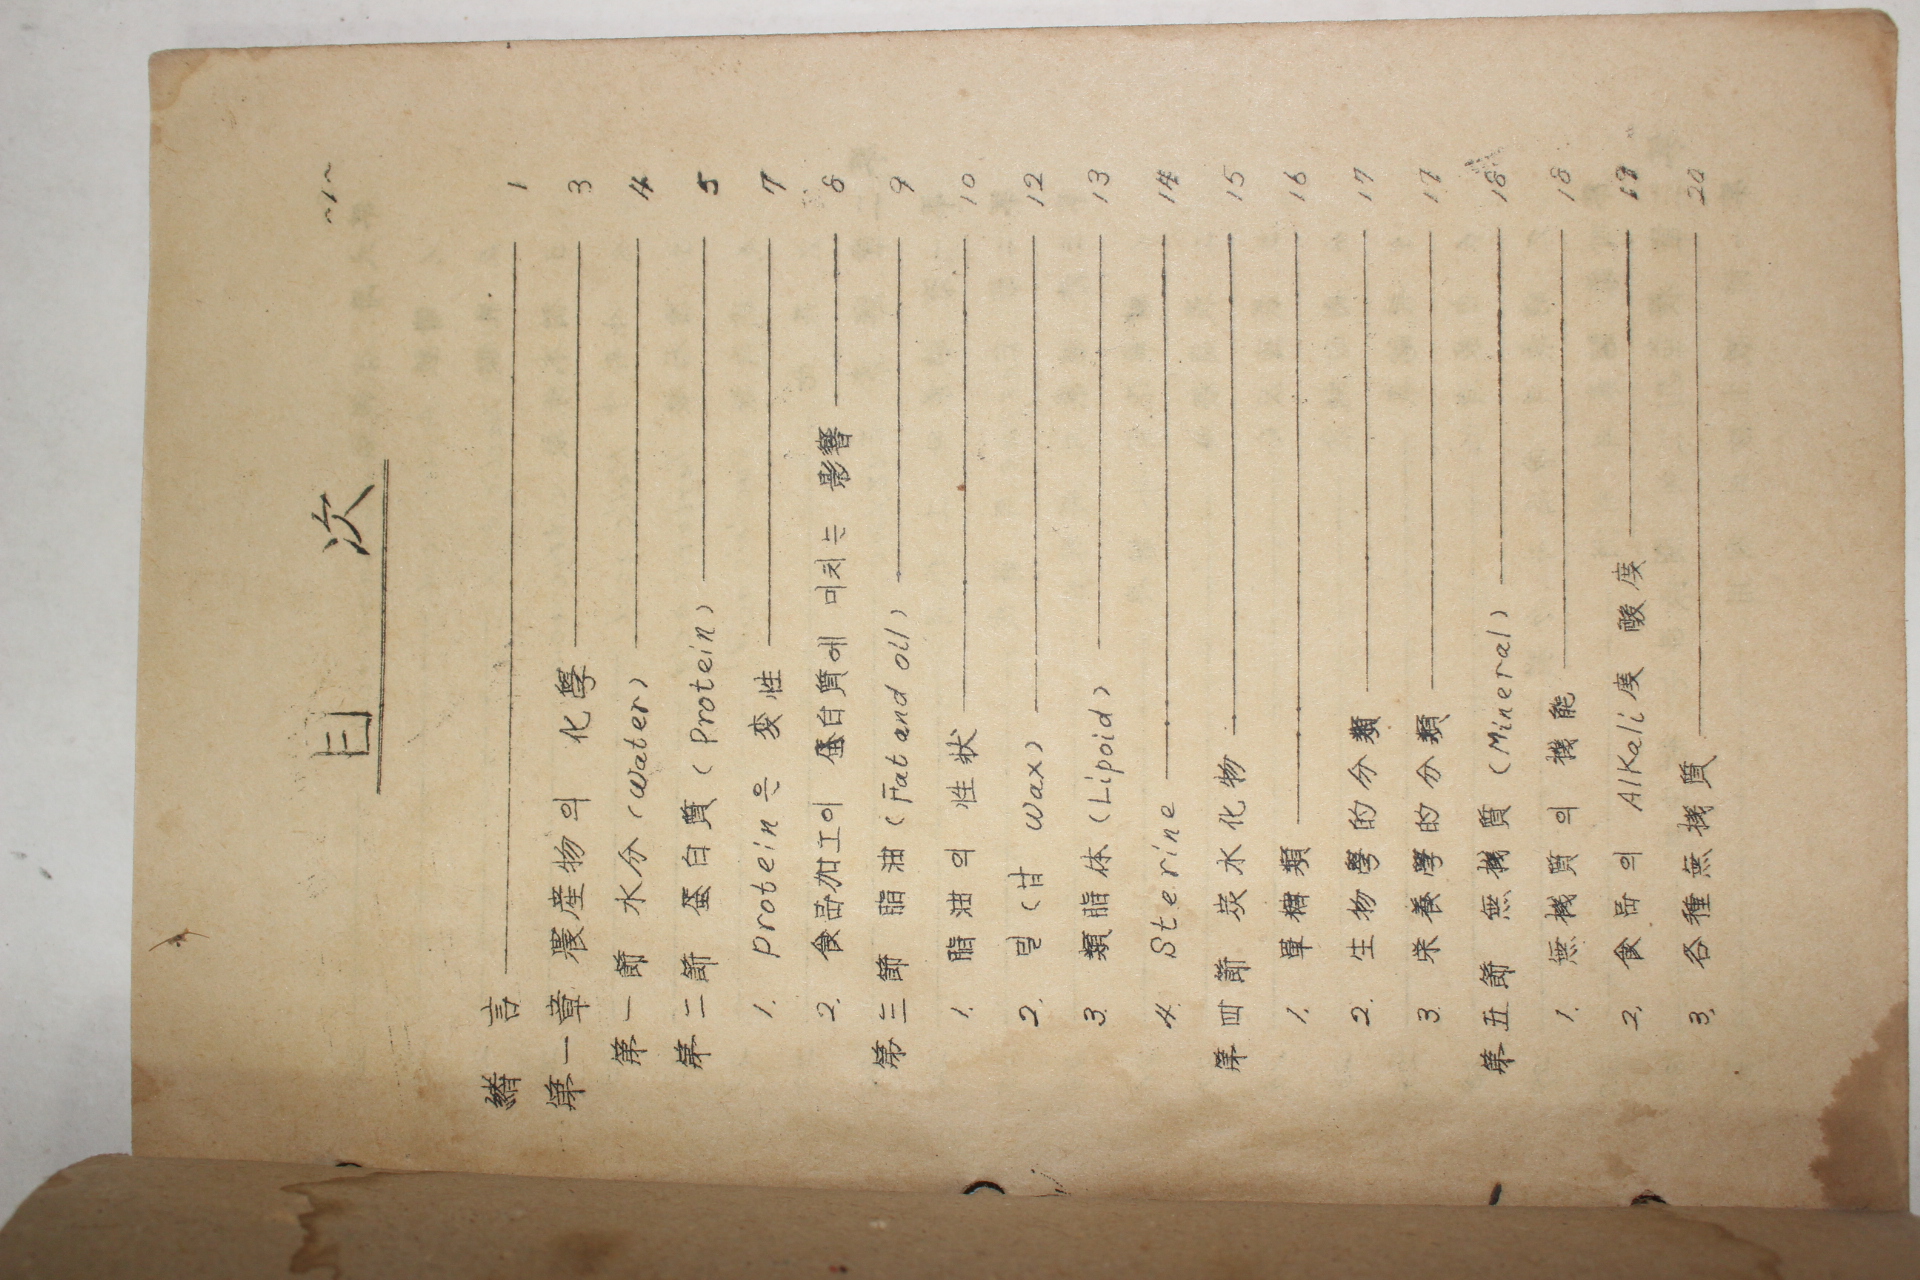 ~1~
目 次
緒 言 1
第一章 農産物의 化學 3
第一節 水分 (Water) 4
第二節 蛋白質 (Protein) 5
1. Protein은 変性 7
2. 食品加工이 蛋白質에 미치는 影響 8
第三節 脂油 (Fat and oil) 9
1. 脂油의 性狀 10
2. 밀 (甘 Wax) 12
3. 類脂体 (Lipoid) 13
4. Sterine 14
第四節 炭水化物 15
1. 單糖類 16
2. 生物學的分類 17
3. 栄養學的分類 17
第五節 無機質 (Mineral) 18
1. 無機質의 機能 18
2. 食品의 Alkali度 酸度 19
3. 各種無機質 20